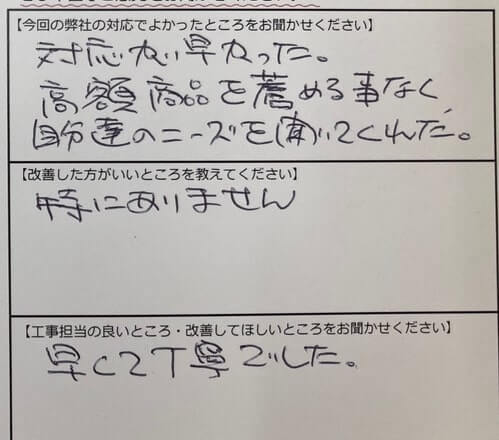 【今回の弊社の対応でよかったところをお聞かせください】
対応が早かった。
高額商品を薦める事なく、
自分達のニーズを聞いてくれた。
【改善した方がいいところを教えてください】
特にありません
【工事担当の良いところ・改善してほしいところをお聞かせください】
早くて丁寧でした。